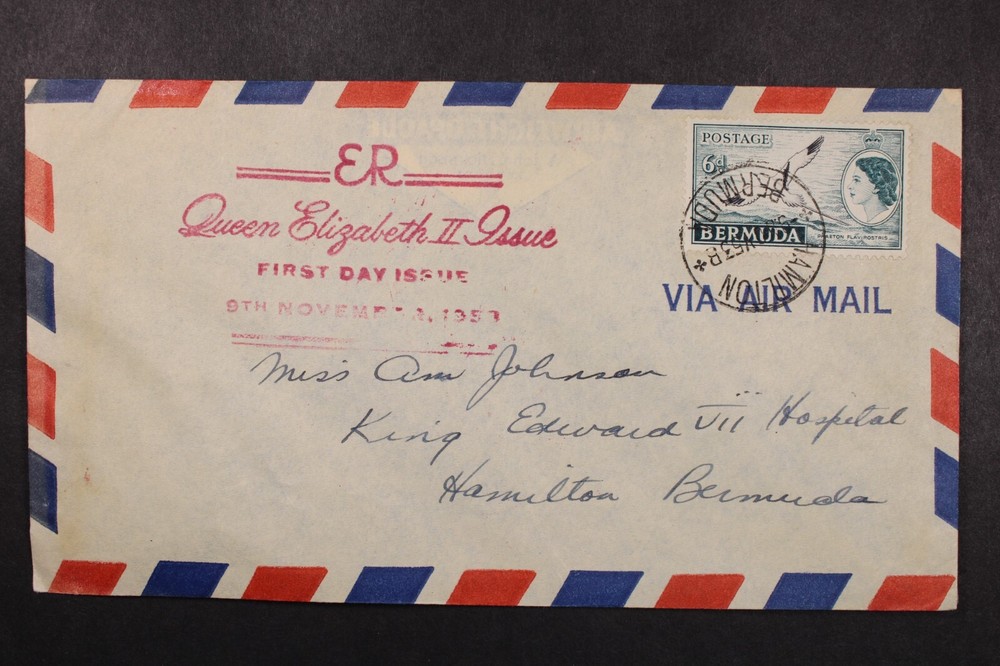 ER
Queen Elizabeth II Issue
FIRST DAY ISSUE
9TH NOVEMBER, 1953
POSTAGE
6d
BERMUDA
HAMILTON
BERMUDA
VIA AIR MAIL
Miss Ann Johnson
King Edward VII Hospital
Hamilton Bermuda